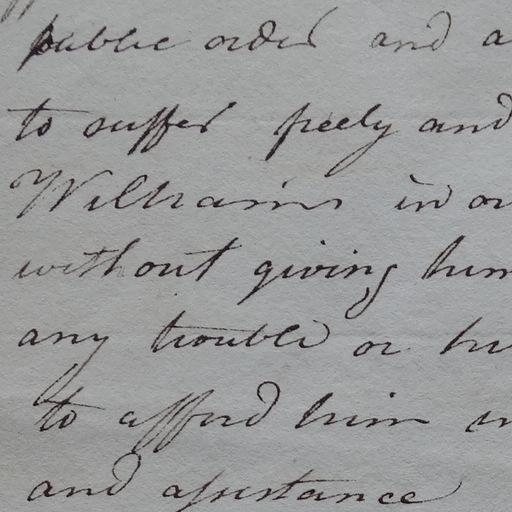 public order and a
to suffer freely and
Williams in or
without giving him
any trouble or hi
to afford him
and assistance